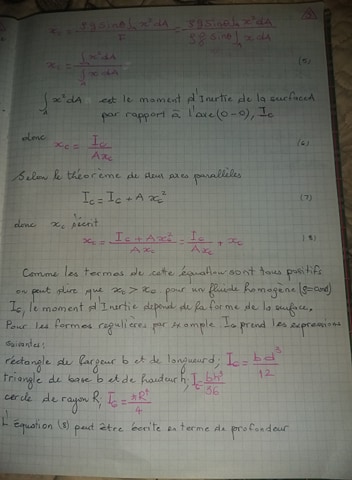 x_c = ρg sinθ ∫_A x² dA / F = ρg sinθ ∫_A x² dA / ρg sinθ ∫_A x dA
x_c = ∫_A x² dA / ∫_A x dA (5)
∫_A x² dA est le moment d'Inertie de la surface A
par rapport à l'axe (0-0), I_o
donc x_c = I_o / A x_c (6)
Selon le théorème de deux axes parallèles
I_o = I_c + A x_c² (7)
donc x_c s'écrit
x_c = I_c + A x_c² / A x_c = I_c / A x_c + x_c (8)
Comme les termes de cette équation sont tous positifs
on peut dire que x_c > x_c pour un fluide homogène
I_c, le moment d'Inertie depend de la forme de la surface.
Pour les formes regulières par exemple I_c prend les expressions
suivantes:
rectangle de largeur b et de longueur d; I_c = b d³ / 12
triangle de base b et de hauteur h; I_c = b h³ / 36
cercle de rayon R; I_c = π R⁴ / 4
L'équation (8) peut être écrite en terme de profondeur